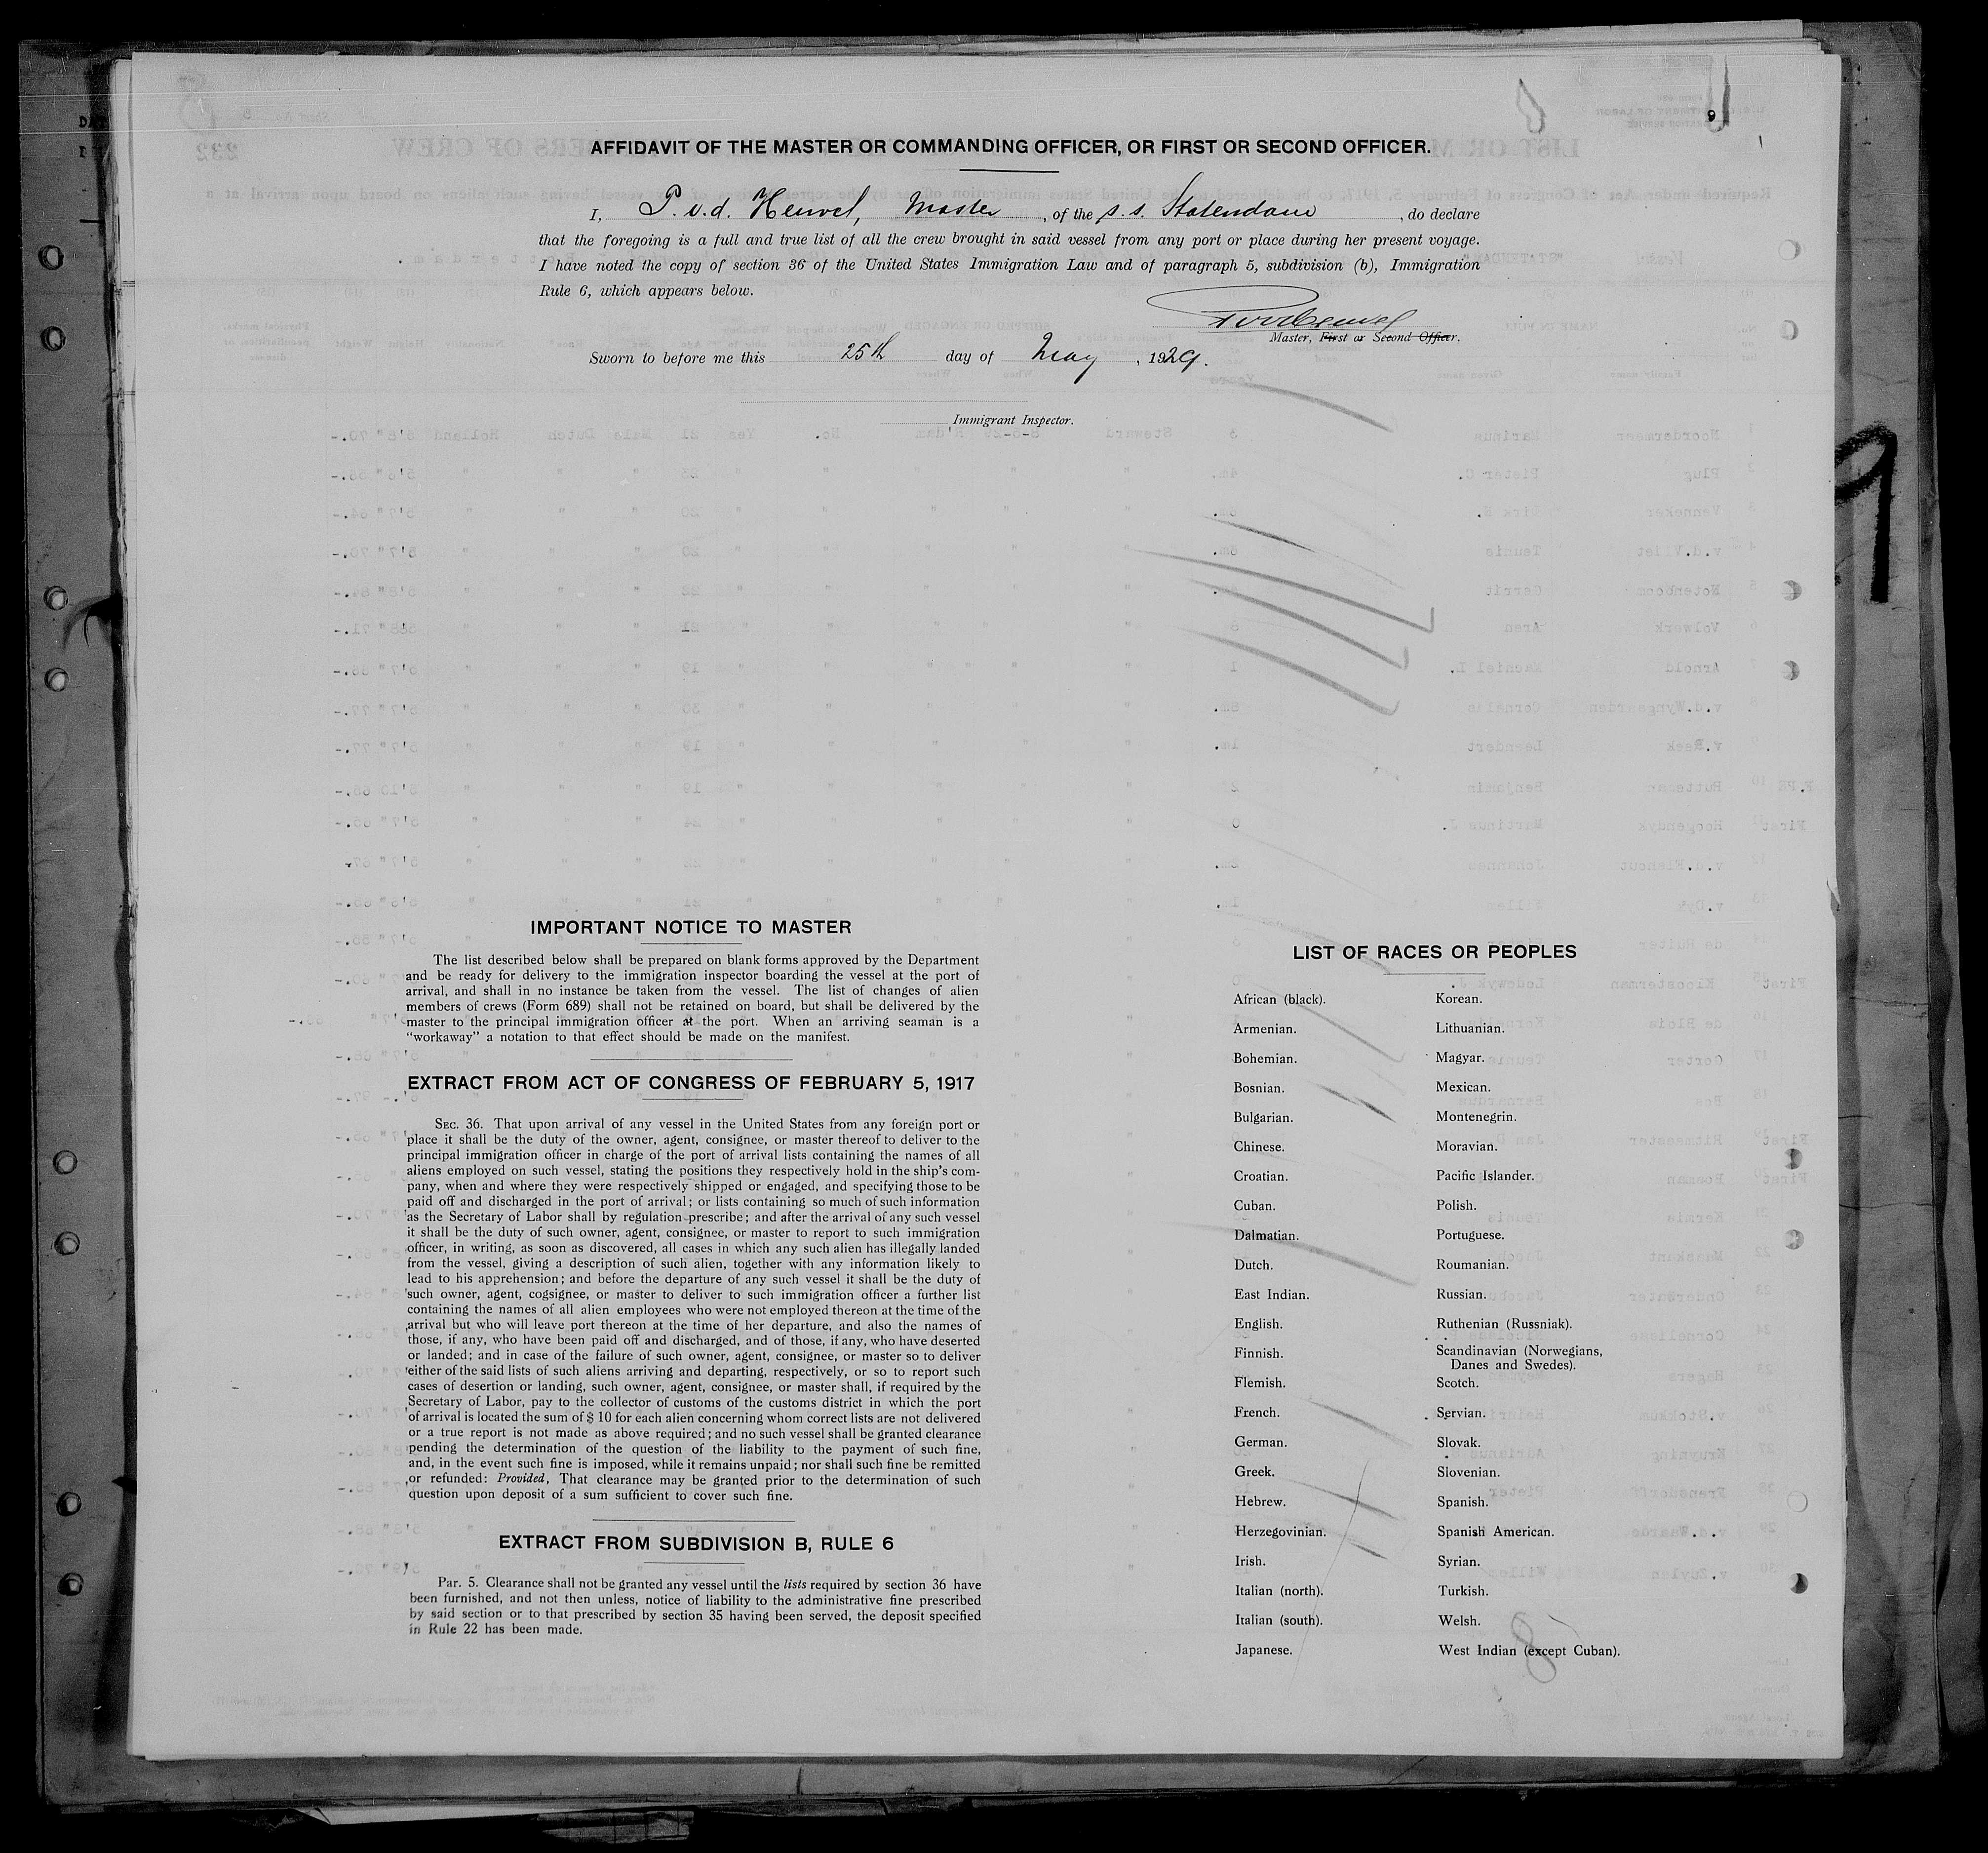 9
AFFIDAVIT OF THE MASTER OR COMMANDING OFFICER, OR FIRST OR SECOND OFFICER.
I, P. v.d. Heuvel, Master, of the s.s. Statendam, do declare
that the foregoing is a full and true list of all the crew brought in said vessel from any port or place during her present voyage.
I have noted the copy of section 36 of the United States Immigration Law and of paragraph 5, subdivision (b), Immigration
Rule 6, which appears below.
Master, First or Second Officer.
Sworn to before me this 25th day of May, 1929.
Immigrant Inspector.
IMPORTANT NOTICE TO MASTER
The list described below shall be prepared on blank forms approved by the Department
and be ready for delivery to the immigration inspector boarding the vessel at the port of
arrival, and shall in no instance be taken from the vessel. The list of changes of alien
members of crews (Form 689) shall not be retained on board, but shall be delivered by the
master to the principal immigration officer at the port. When an arriving seaman is a
“workaway” a notation to that effect should be made on the manifest.
EXTRACT FROM ACT OF CONGRESS OF FEBRUARY 5, 1917
SEC. 36. That upon arrival of any vessel in the United States from any foreign port or
place it shall be the duty of the owner, agent, consignee, or master thereof to deliver to the
principal immigration officer in charge of the port of arrival lists containing the names of all
aliens employed on such vessel, stating the positions they respectively hold in the ship's com-
pany, when and where they were respectively shipped or engaged, and specifying those to be
paid off and discharged in the port of arrival; or lists containing so much of such information
as the Secretary of Labor shall by regulation prescribe; and after the arrival of any such vessel
it shall be the duty of such owner, agent, consignee, or master to report to such immigration
officer, in writing, as soon as discovered, all cases in which any such alien has illegally landed
from the vessel, giving a description of such alien, together with any information likely to
lead to his apprehension; and before the departure of any such vessel it shall be the duty of
such owner, agent, cogsignee, or master to deliver to such immigration officer a further list
containing the names of all alien employees who were not employed thereon at the time of the
arrival but who will leave port thereon at the time of her departure, and also the names of
those, if any, who have been paid off and discharged, and of those, if any, who have deserted
or landed; and in case of the failure of such owner, agent, consignee, or master so to deliver
either of the said lists of such aliens arriving and departing, respectively, or so to report such
cases of desertion or landing, such owner, agent, consignee, or master shall, if required by the
Secretary of Labor, pay to the collector of customs of the customs district in which the port
of arrival is located the sum of $ 10 for each alien concerning whom correct lists are not delivered
or a true report is not made as above required; and no such vessel shall be granted clearance
pending the determination of the question of the liability to the payment of such fine,
and, in the event such fine is imposed, while it remains unpaid; nor shall such fine be remitted
or refunded: Provided, That clearance may be granted prior to the determination of such
question upon deposit of a sum sufficient to cover such fine.
EXTRACT FROM SUBDIVISION B, RULE 6
Par. 5. Clearance shall not be granted any vessel until the lists required by section 36 have
been furnished, and not then unless, notice of liability to the administrative fine prescribed
by said section or to that prescribed by section 35 having been served, the deposit specified
in Rule 22 has been made.
LIST OF RACES OR PEOPLES
African (black).
Armenian.
Bohemian.
Bosnian.
Bulgarian.
Chinese.
Croatian.
Cuban.
Dalmatian.
Dutch.
East Indian.
English.
Finnish.
Flemish.
French.
German.
Greek.
Hebrew.
Herzegovinian.
Irish.
Italian (north).
Italian (south).
Japanese.
Korean.
Lithuanian.
Magyar.
Mexican.
Montenegrin.
Moravian.
Pacific Islander.
Polish.
Portuguese.
Roumanian.
Russian.
Ruthenian (Russniak).
Scandinavian (Norwegians,
Danes and Swedes).
Scotch.
Servian.
Slovak.
Slovenian.
Spanish.
Spanish American.
Syrian.
Turkish.
Welsh.
West Indian (except Cuban).
8
9